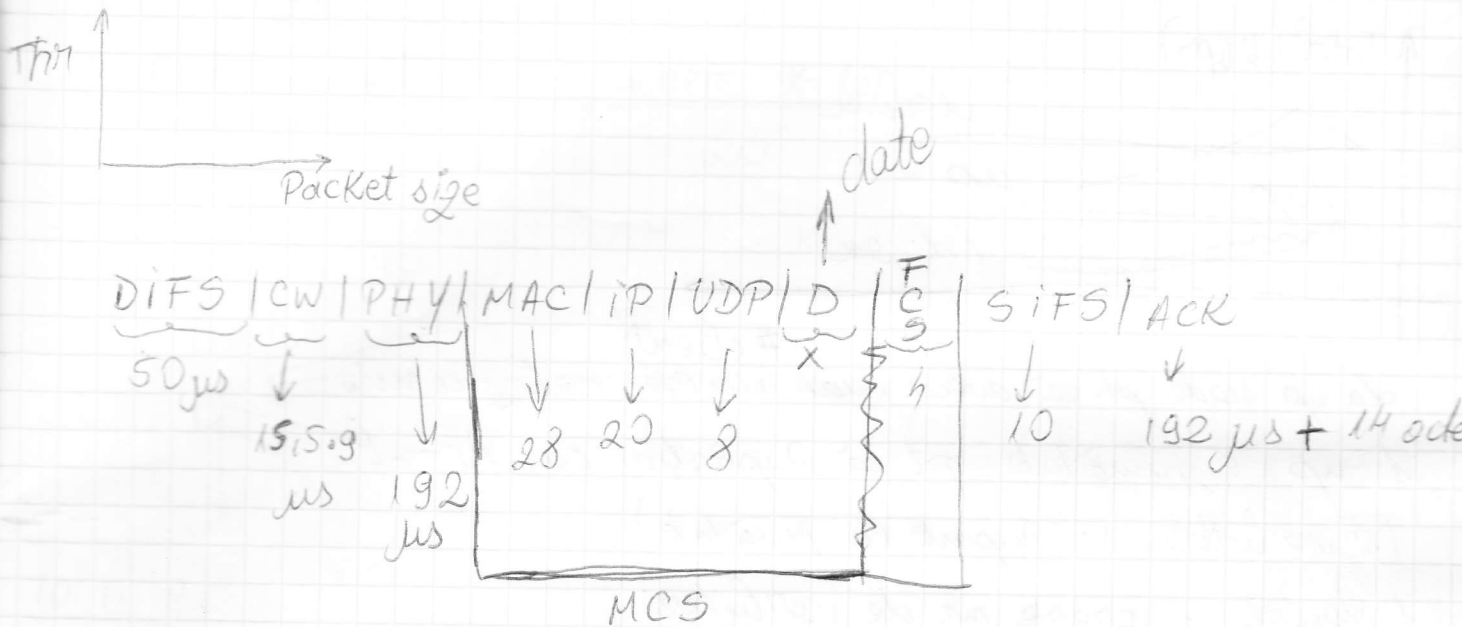 Thr
Packet size
date
DiFS | CW | PHY | MAC | iP | UDP | D | FCS | SiFS | ACK
50 µs
15,5.9 µs
192 µs
28
20
8
x
4
10
192 µs + 14 octe
MCS